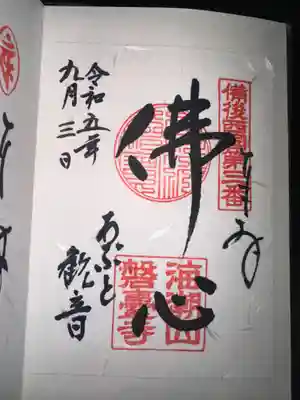 備後西国第三番
佛心
海潮山
磐臺寺
あぶと
観音
令和五年
九月三日